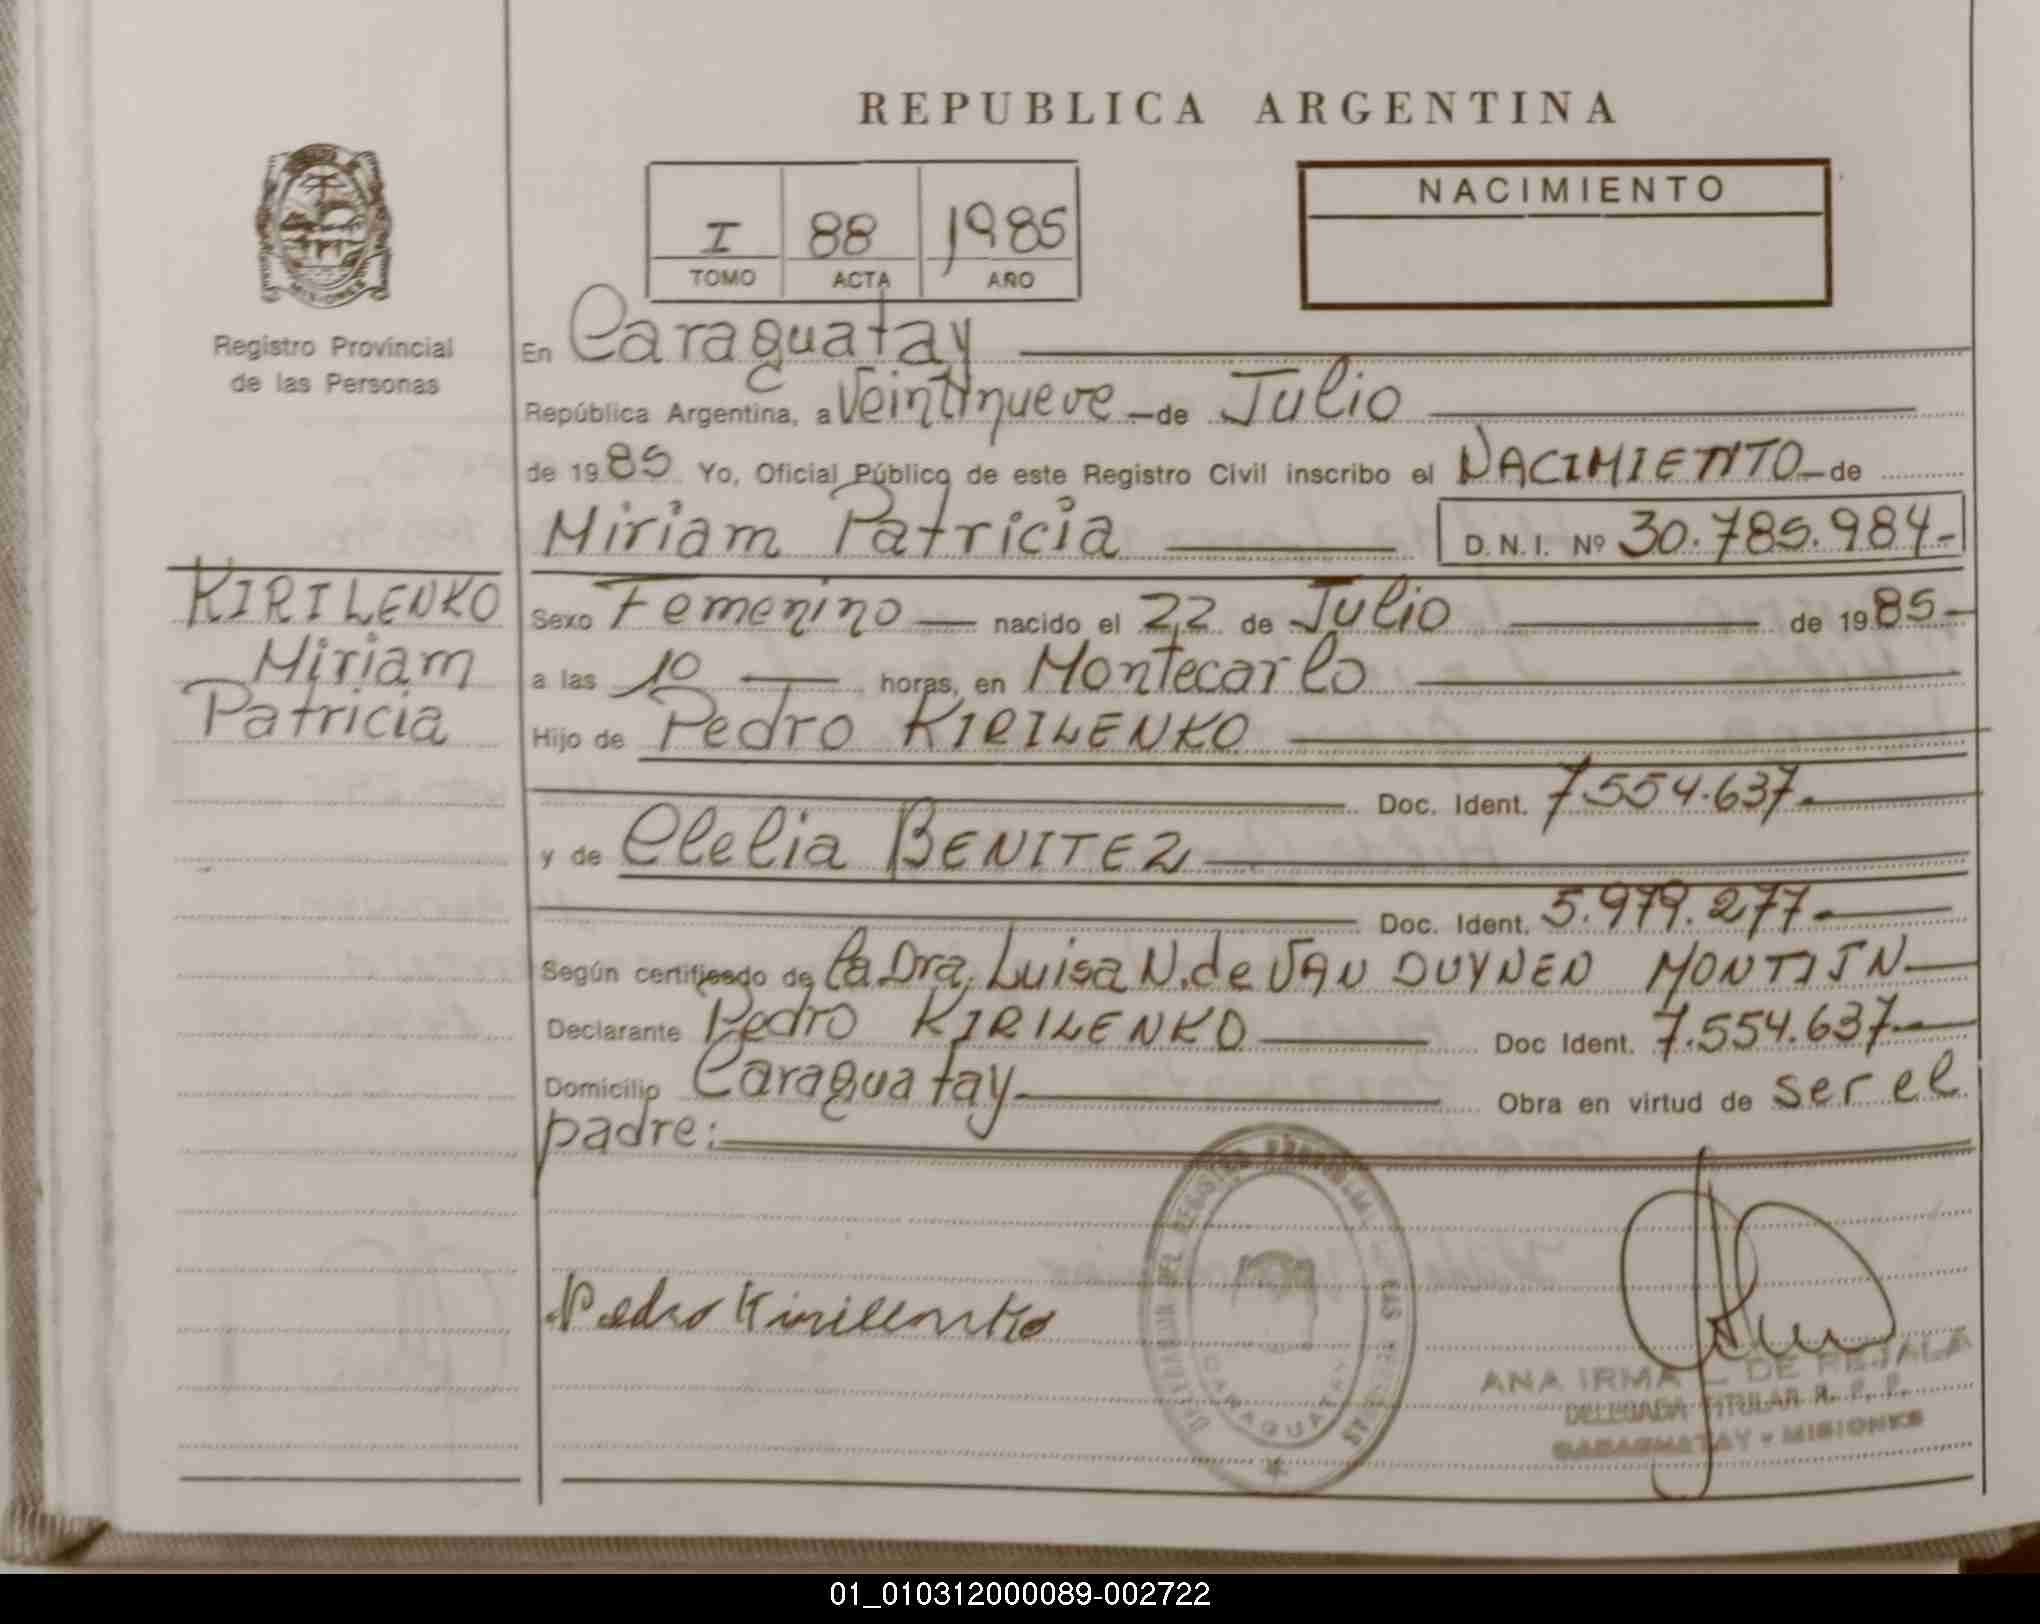 REPUBLICA ARGENTINA
MISIONES
Registro Provincial
de las Personas
I 88 1985
TOMO ACTA AÑO
NACIMIENTO
En Caraguatay
República Argentina, a Veintinueve de Julio
de 1985 Yo, Oficial Público de este Registro Civil inscribo el NACIMIENTO de
Miriam Patricia D.N.I. Nº 30.785.984-
KIRILENKO
Miriam
Patricia
Sexo Femenino nacido el 22 de Julio de 1985
a las 10 horas, en Montecarlo
Hijo de Pedro KIRILENKO
Doc. Ident. 7.554.637.
y de Clelia BENITEZ
Doc. Ident. 5.979.277
Según certificado de la Dra. Luisa N. de VAN DUYNEN MONTIJN
Declarante Pedro KIRILENKO Doc Ident. 7.554.637
Domicilio Caraguatay Obra en virtud de ser el
padre:
DEL REGISTRO PROVINCIAL LAS
CARAGUATAY
Pedro Kirillenko
ANA IRMA DE REJALA
DELEGADA TITULAR R. P. P.
CARAGUATAY - MISIONES
01_010312000089-002722